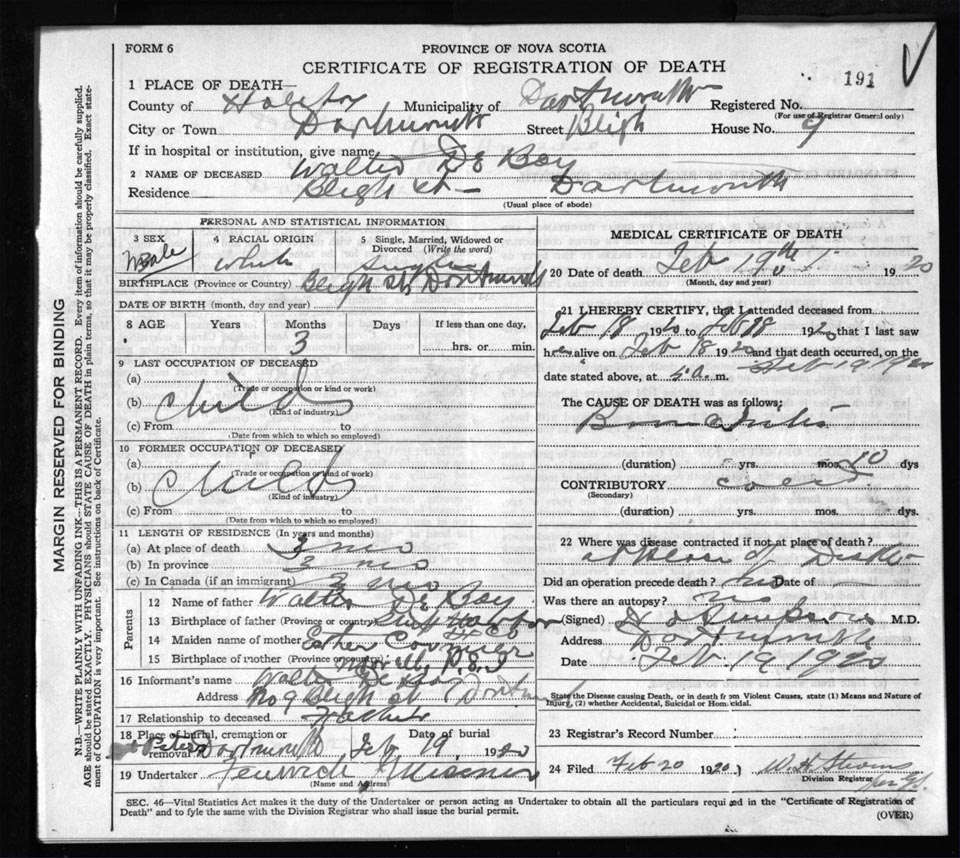 FORM 6
PROVINCE OF NOVA SCOTIA
CERTIFICATE OF REGISTRATION OF DEATH
191
1 PLACE OF DEATH—
County of Halifax Municipality of Dartmouth Registered No.
(For use of Registrar General only)
City or Town Dartmouth Street Bligh House No. 9
If in hospital or institution, give name
2 NAME OF DECEASED Walter De Boy
Residence Bleigh St— Dartmouth
(Usual place of abode)
PERSONAL AND STATISTICAL INFORMATION
3 SEX Male
4 RACIAL ORIGIN White
5 Single, Married, Widowed or Divorced (Write the word) Single
BIRTHPLACE (Province or Country) Bleigh St Dartmouth
DATE OF BIRTH (month, day and year)
8 AGE Years Months 3 Days If less than one day, hrs. or min.
9 LAST OCCUPATION OF DECEASED
(a)
(Trade or occupation or kind or work)
(b) Child
(Kind of industry)
(c) From to
(Date from which to which so employed)
10 FORMER OCCUPATION OF DECEASED
(a)
(Trade or occupation or kind of work)
(b) Child
(Kind of industry)
(c) From to
(Date from which to which so employed)
11 LENGTH OF RESIDENCE (In years and months)
(a) At place of death 3 mos
(b) In province 3 mos
(c) In Canada (if an immigrant) 3 mos
Parents
12 Name of father Walter De Boy
13 Birthplace of father (Province or country)
14 Maiden name of mother Esther
15 Birthplace of mother (Province or country)
16 Informant's name Walter De Boy
Address No 9 Bleigh St Dartmouth
17 Relationship to deceased Father
18 Place of burial, cremation or removal St Peters Dartmouth Date of burial Feb 19 1920
19 Undertaker Fenwick
(Name and Address)
MEDICAL CERTIFICATE OF DEATH
20 Date of death Feb 19th 1920
(Month, day and year)
21 I HEREBY CERTIFY, that I attended deceased from
Feb 18 1920 to Feb 18 1920 that I last saw
h alive on Feb 18 1920 and that death occurred, on the
date stated above, at 5 a. m. Feb 19 1920
The CAUSE OF DEATH was as follows;
Bronchitis
(duration) yrs. mos. 10 dys
CONTRIBUTORY cold
(Secondary)
(duration) yrs. mos. dys.
22 Where was disease contracted if not at place of death?
at place of Death
Did an operation precede death? no Date of —
Was there an autopsy? no
(Signed) M.D.
Address Dartmouth
Date Feb 19 1920
State the Disease causing Death, or in death from Violent Causes, state (1) Means and Nature of
Injury, (2) whether Accidental, Suicidal or Homicidal.
23 Registrar's Record Number
24 Filed Feb 20 1920) W. H. Stevens
Division Registrar
SEC. 46—Vital Statistics Act makes it the duty of the Undertaker or person acting as Undertaker to obtain all the particulars required in the "Certificate of Registration of
Death" and to fyle the same with the Division Registrar who shall issue the burial permit.
(OVER)
MARGIN RESERVED FOR BINDING
N.B.—WRITE PLAINLY WITH UNFADING INK—THIS IS A PERMANENT RECORD. Every item of information should be carefully supplied.
AGE should be stated EXACTLY. PHYSICIANS should STATE CAUSE OF DEATH in plain terms, so that it may be properly classified. Exact statement of OCCUPATION is very important. See instructions on back of Certificate.